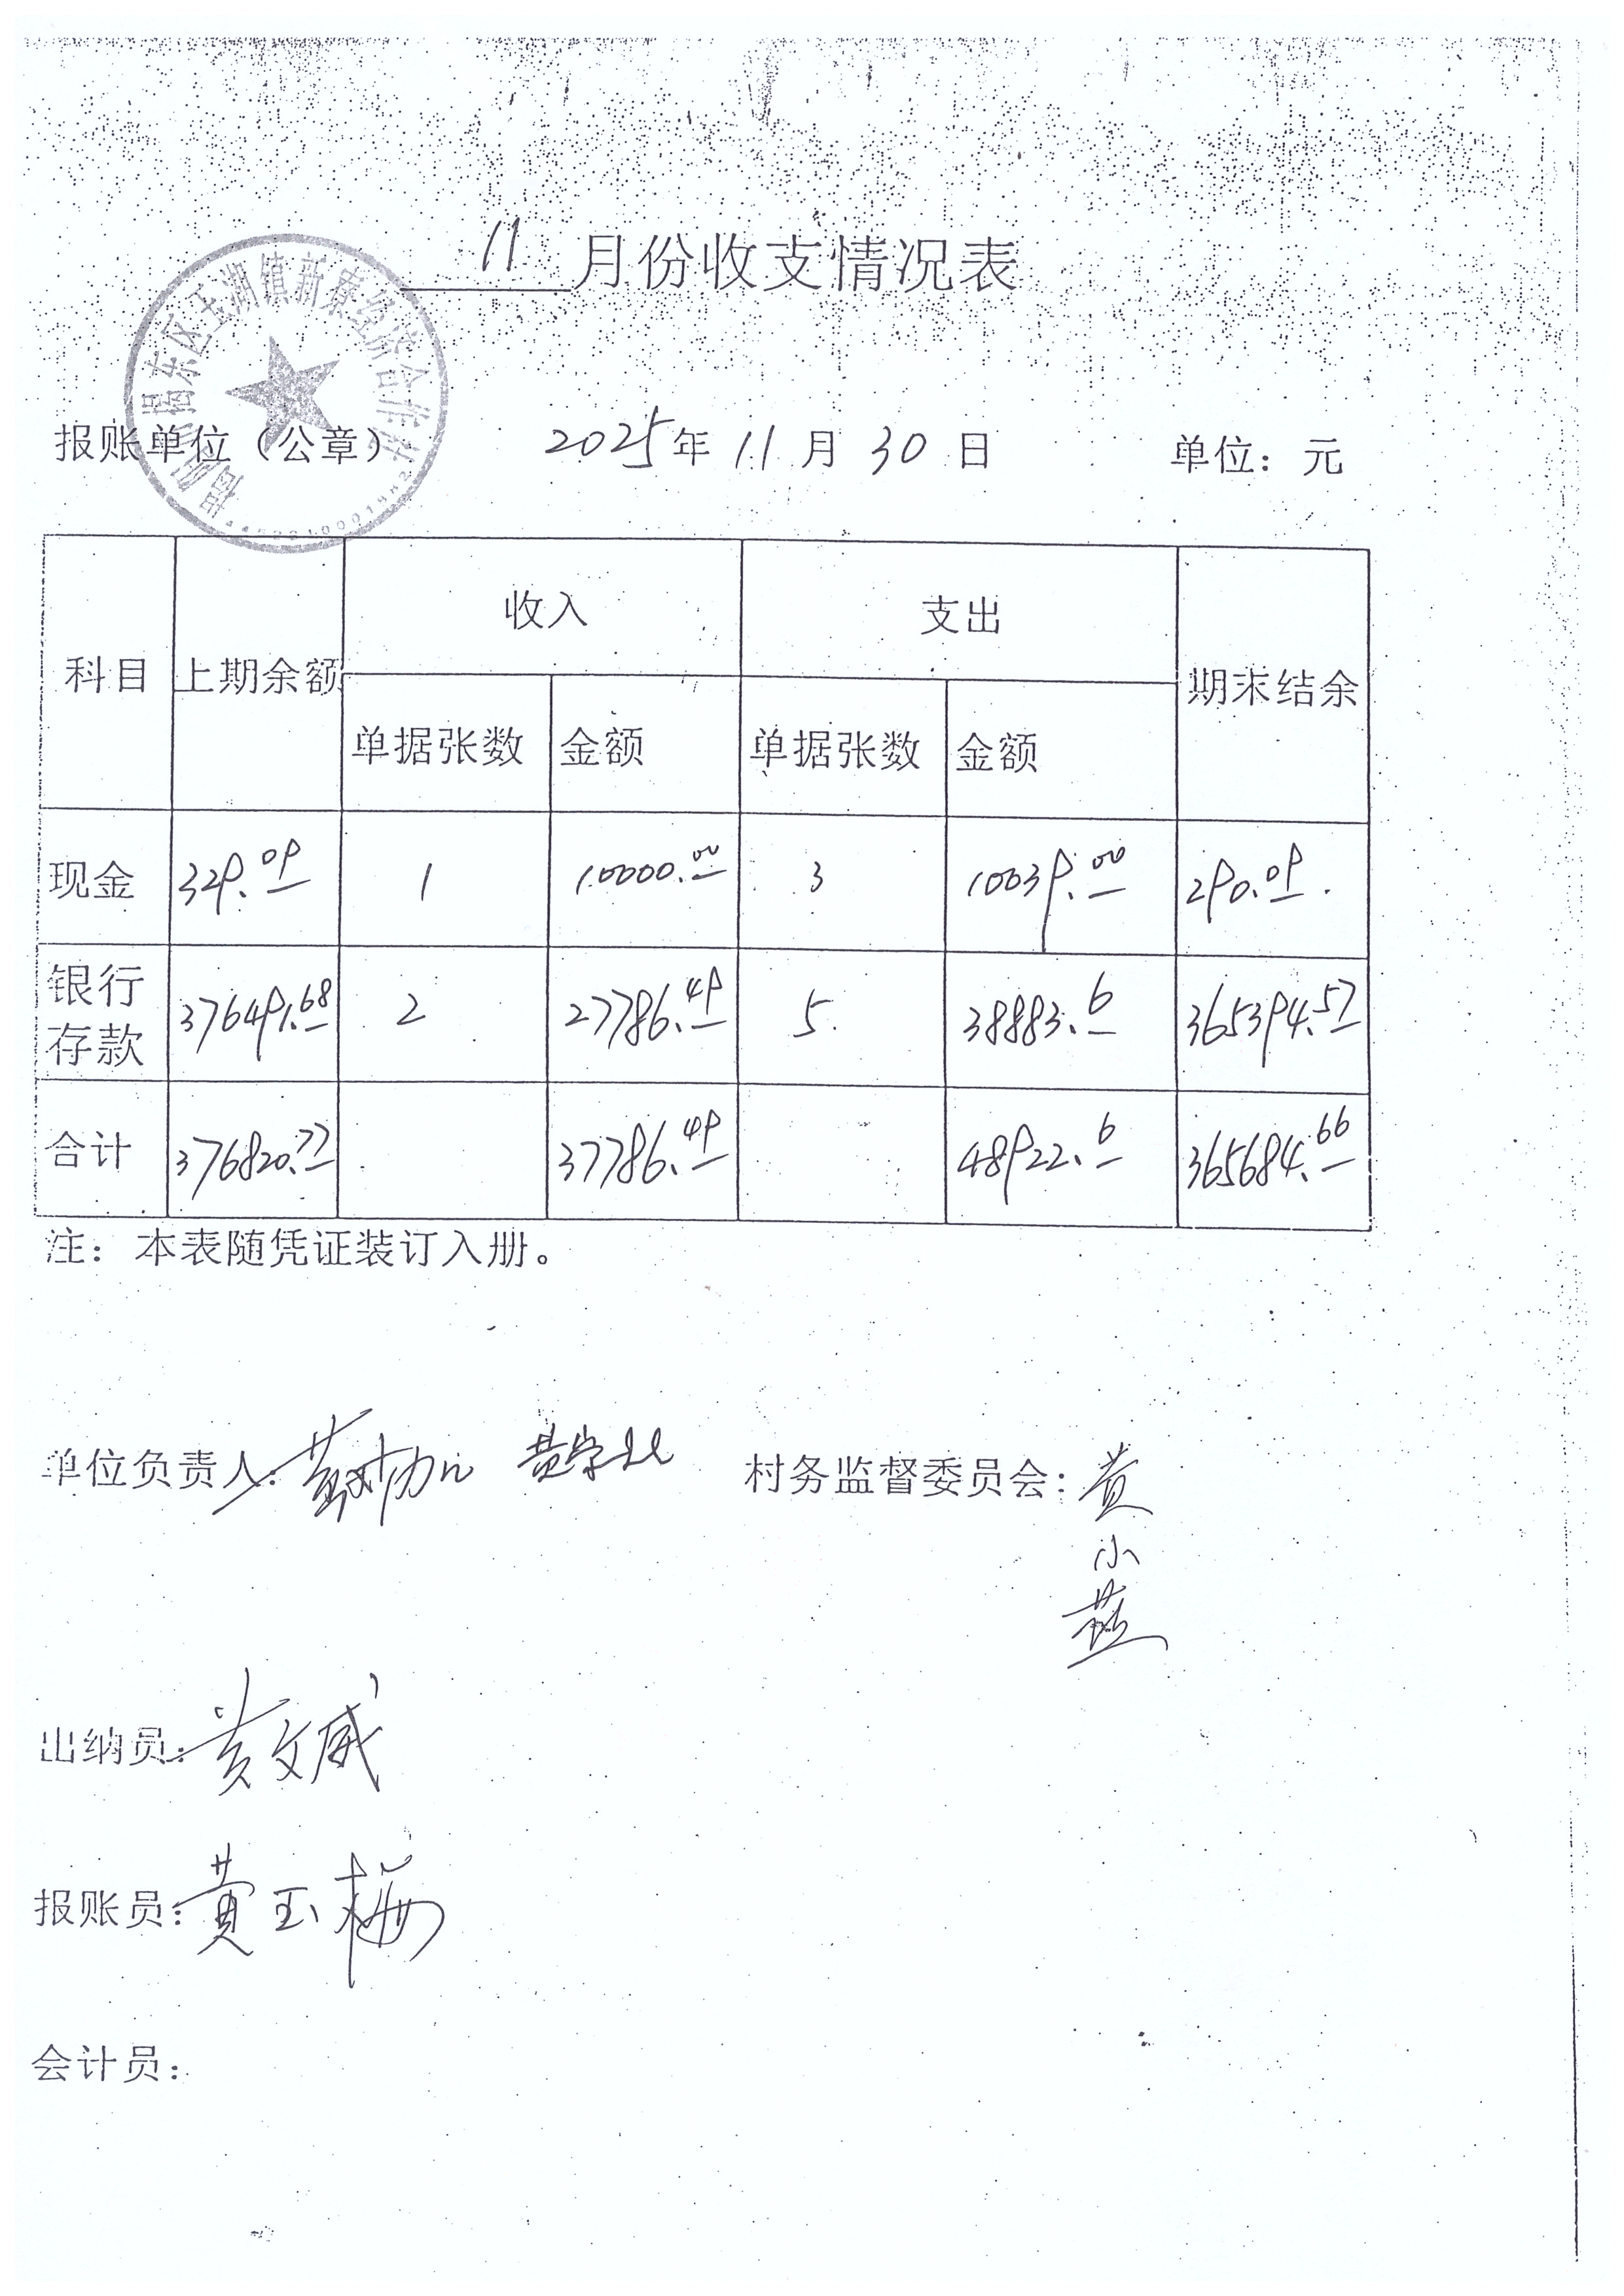 11月份收支情况表
揭阳市揭东区玉湖镇新寮经济合作社
报账单位（公章） 2025年11月30日 单位：元
科目 上期余额 收入 支出 期末结余
单据张数 金额 单据张数 金额
现金 329.09 1 10000.00 3 10039.00 290.09
银行存款 376491.68 2 27786.49 5 38883.6 365394.57
合计 376820.77 37786.49 48922.6 365684.66
注：本表随凭证装订入册。
单位负责人： 村务监督委员会：黄小燕
出纳员：黄文威
报账员：黄玉梅
会计员：